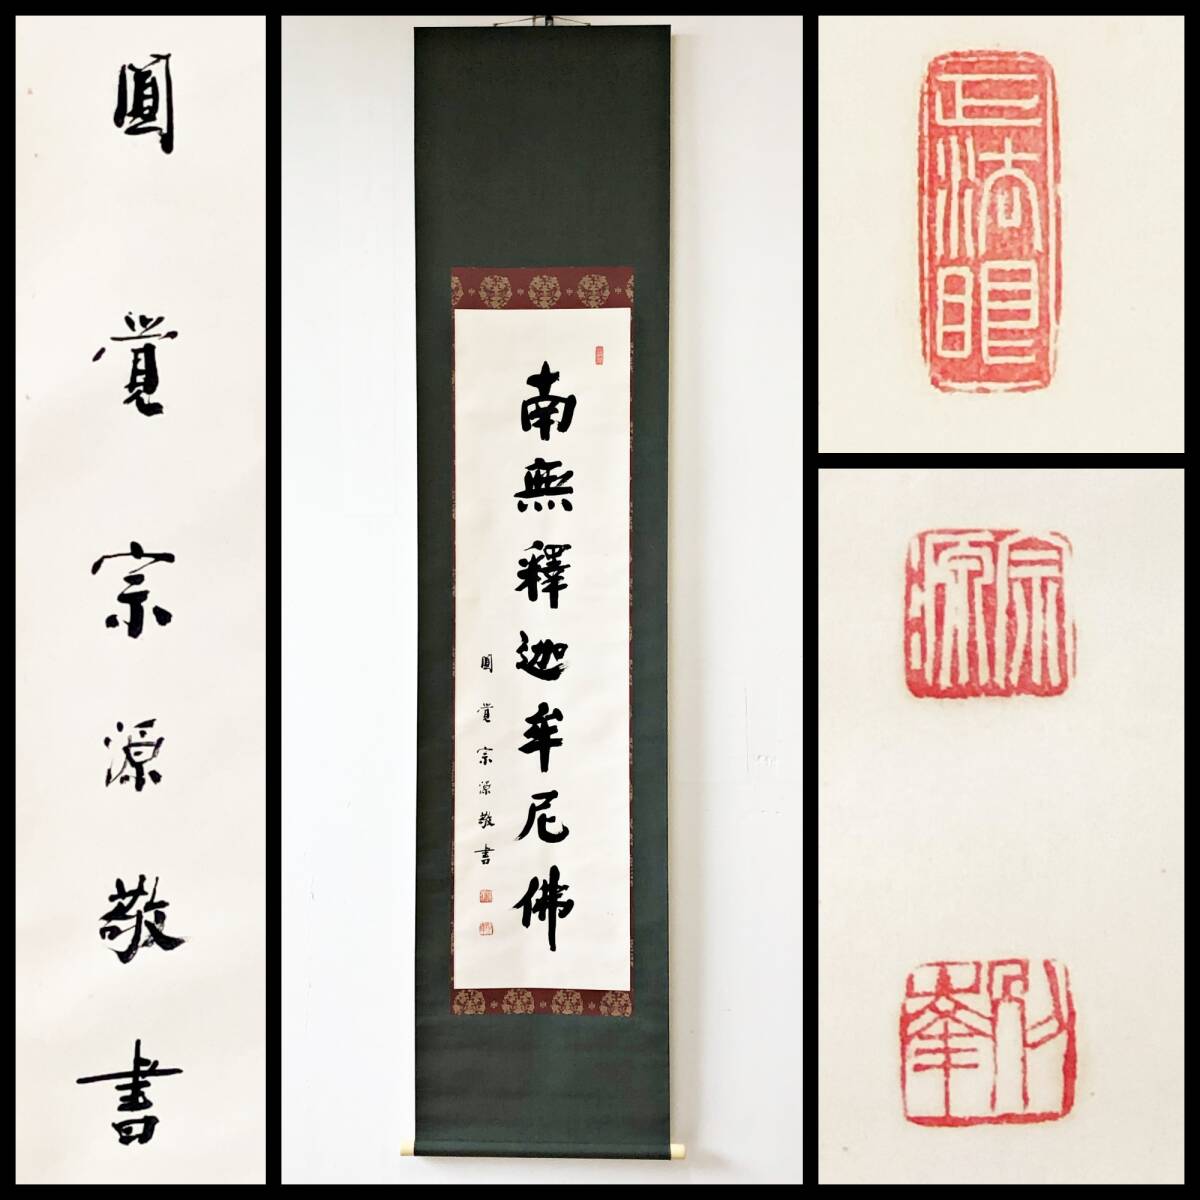 圓覺宗源敬書
南無釋迦牟尼佛
圓覺宗源敬書
正法眼
宗源